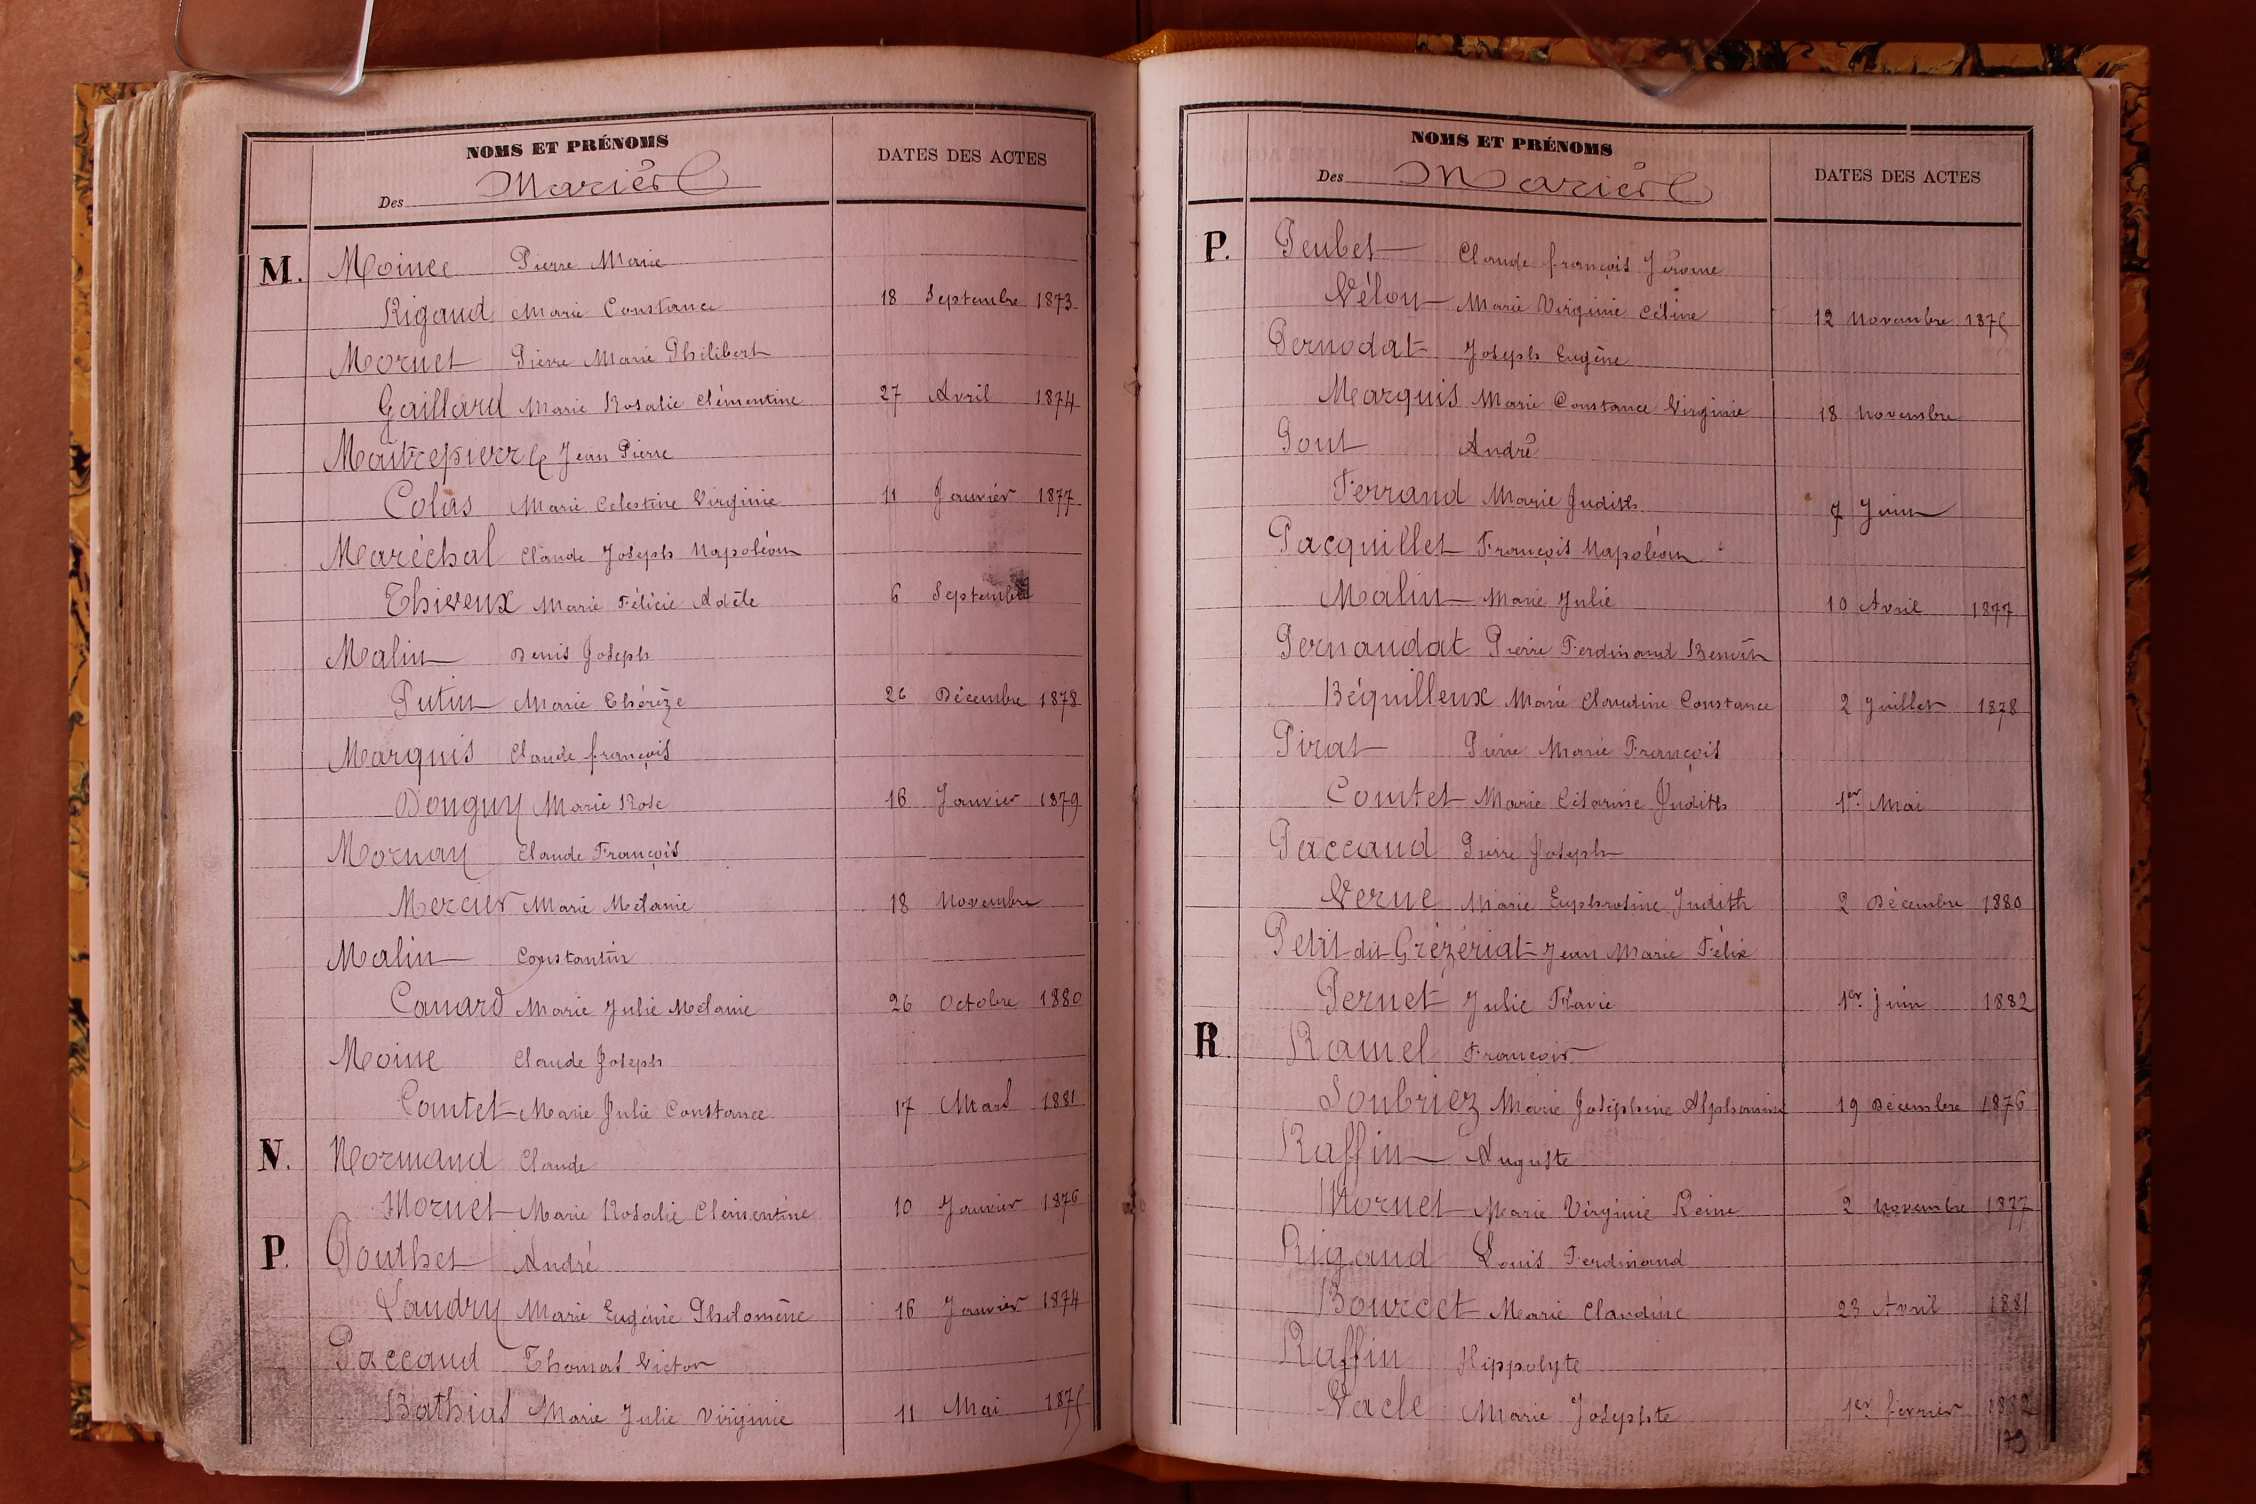 NOMS ET PRÉNOMS
Des Mariés
DATES DES ACTES
M. Moinee Pierre Marie
Rigaud Marie Constance 18 Septembre 1873
Mornet Pierre Marie Philibert
Gaillard Marie Rosalie Clémentine 27 Avril 1874
Maitrepierre Jean Pierre
Colas Marie Celestine Virginie 11 Janvier 1877
Maréchal Claude Joseph Napoléon
Thiveux Marie Félicie Adèle 6 Septembre
Malin Denis Joseph
Putin Marie Thérèze 26 Décembre 1878
Marquis Claude françois
Donguy Marie Rose 16 Janvier 1879
Mornay Claude François
Mercier Marie Mélanie 18 Novembre
Malin Constantin
Canard Marie Julie Mélanie 26 Octobre 1880
Moine Claude Joseph
Comtet Marie Julie Constance 17 Mars 1881
N. Normand Claude
Mornet Marie Rosalie Clémentine 10 Janvier 1876
P. Pouthet André
Laudry Marie Eugénie Philomène 16 Janvier 1874
Paccaud Thomas Victor
Bathias Marie Julie Virginie 11 Mai 1875
NOMS ET PRÉNOMS
Des Mariés
DATES DES ACTES
P. Peubet Claude françois Jérome
Véloy Marie Virginie Céline 12 Novembre 1875
Pernodat Joseph Eugène
Marquis Marie Constance Virginie 18 Novembre
Pont André
Ferrand Marie Judith 7 Juin
Pacquillet François Napoléon
Malin Marie Julie 10 Avril 1877
Pernaudat Pierre Ferdinand Benoît
Béquilleux Marie Claudine Constance 2 Juillet 1878
Pirat Pierre Marie François
Comtet Marie Césarine Judith 1er Mai
Paccaud Pierre Joseph
Verne Marie Euphrosine Judith 2 Décembre 1880
Petit dit Grézériat Jean Marie Félix
Pernet Julie Flavie 1er juin 1882
R Ramel François
Soubriez Marie Joséphine Alphonsine 19 Décembre 1876
Raffin Auguste
Mornet Marie Virginie Reine 2 Novembre 1877
Rigaud Louis Ferdinand
Bourcet Marie Claudine 23 Avril 1881
Raffin Hippolyte
Vacle Marie Josephte 1er février 1882
179